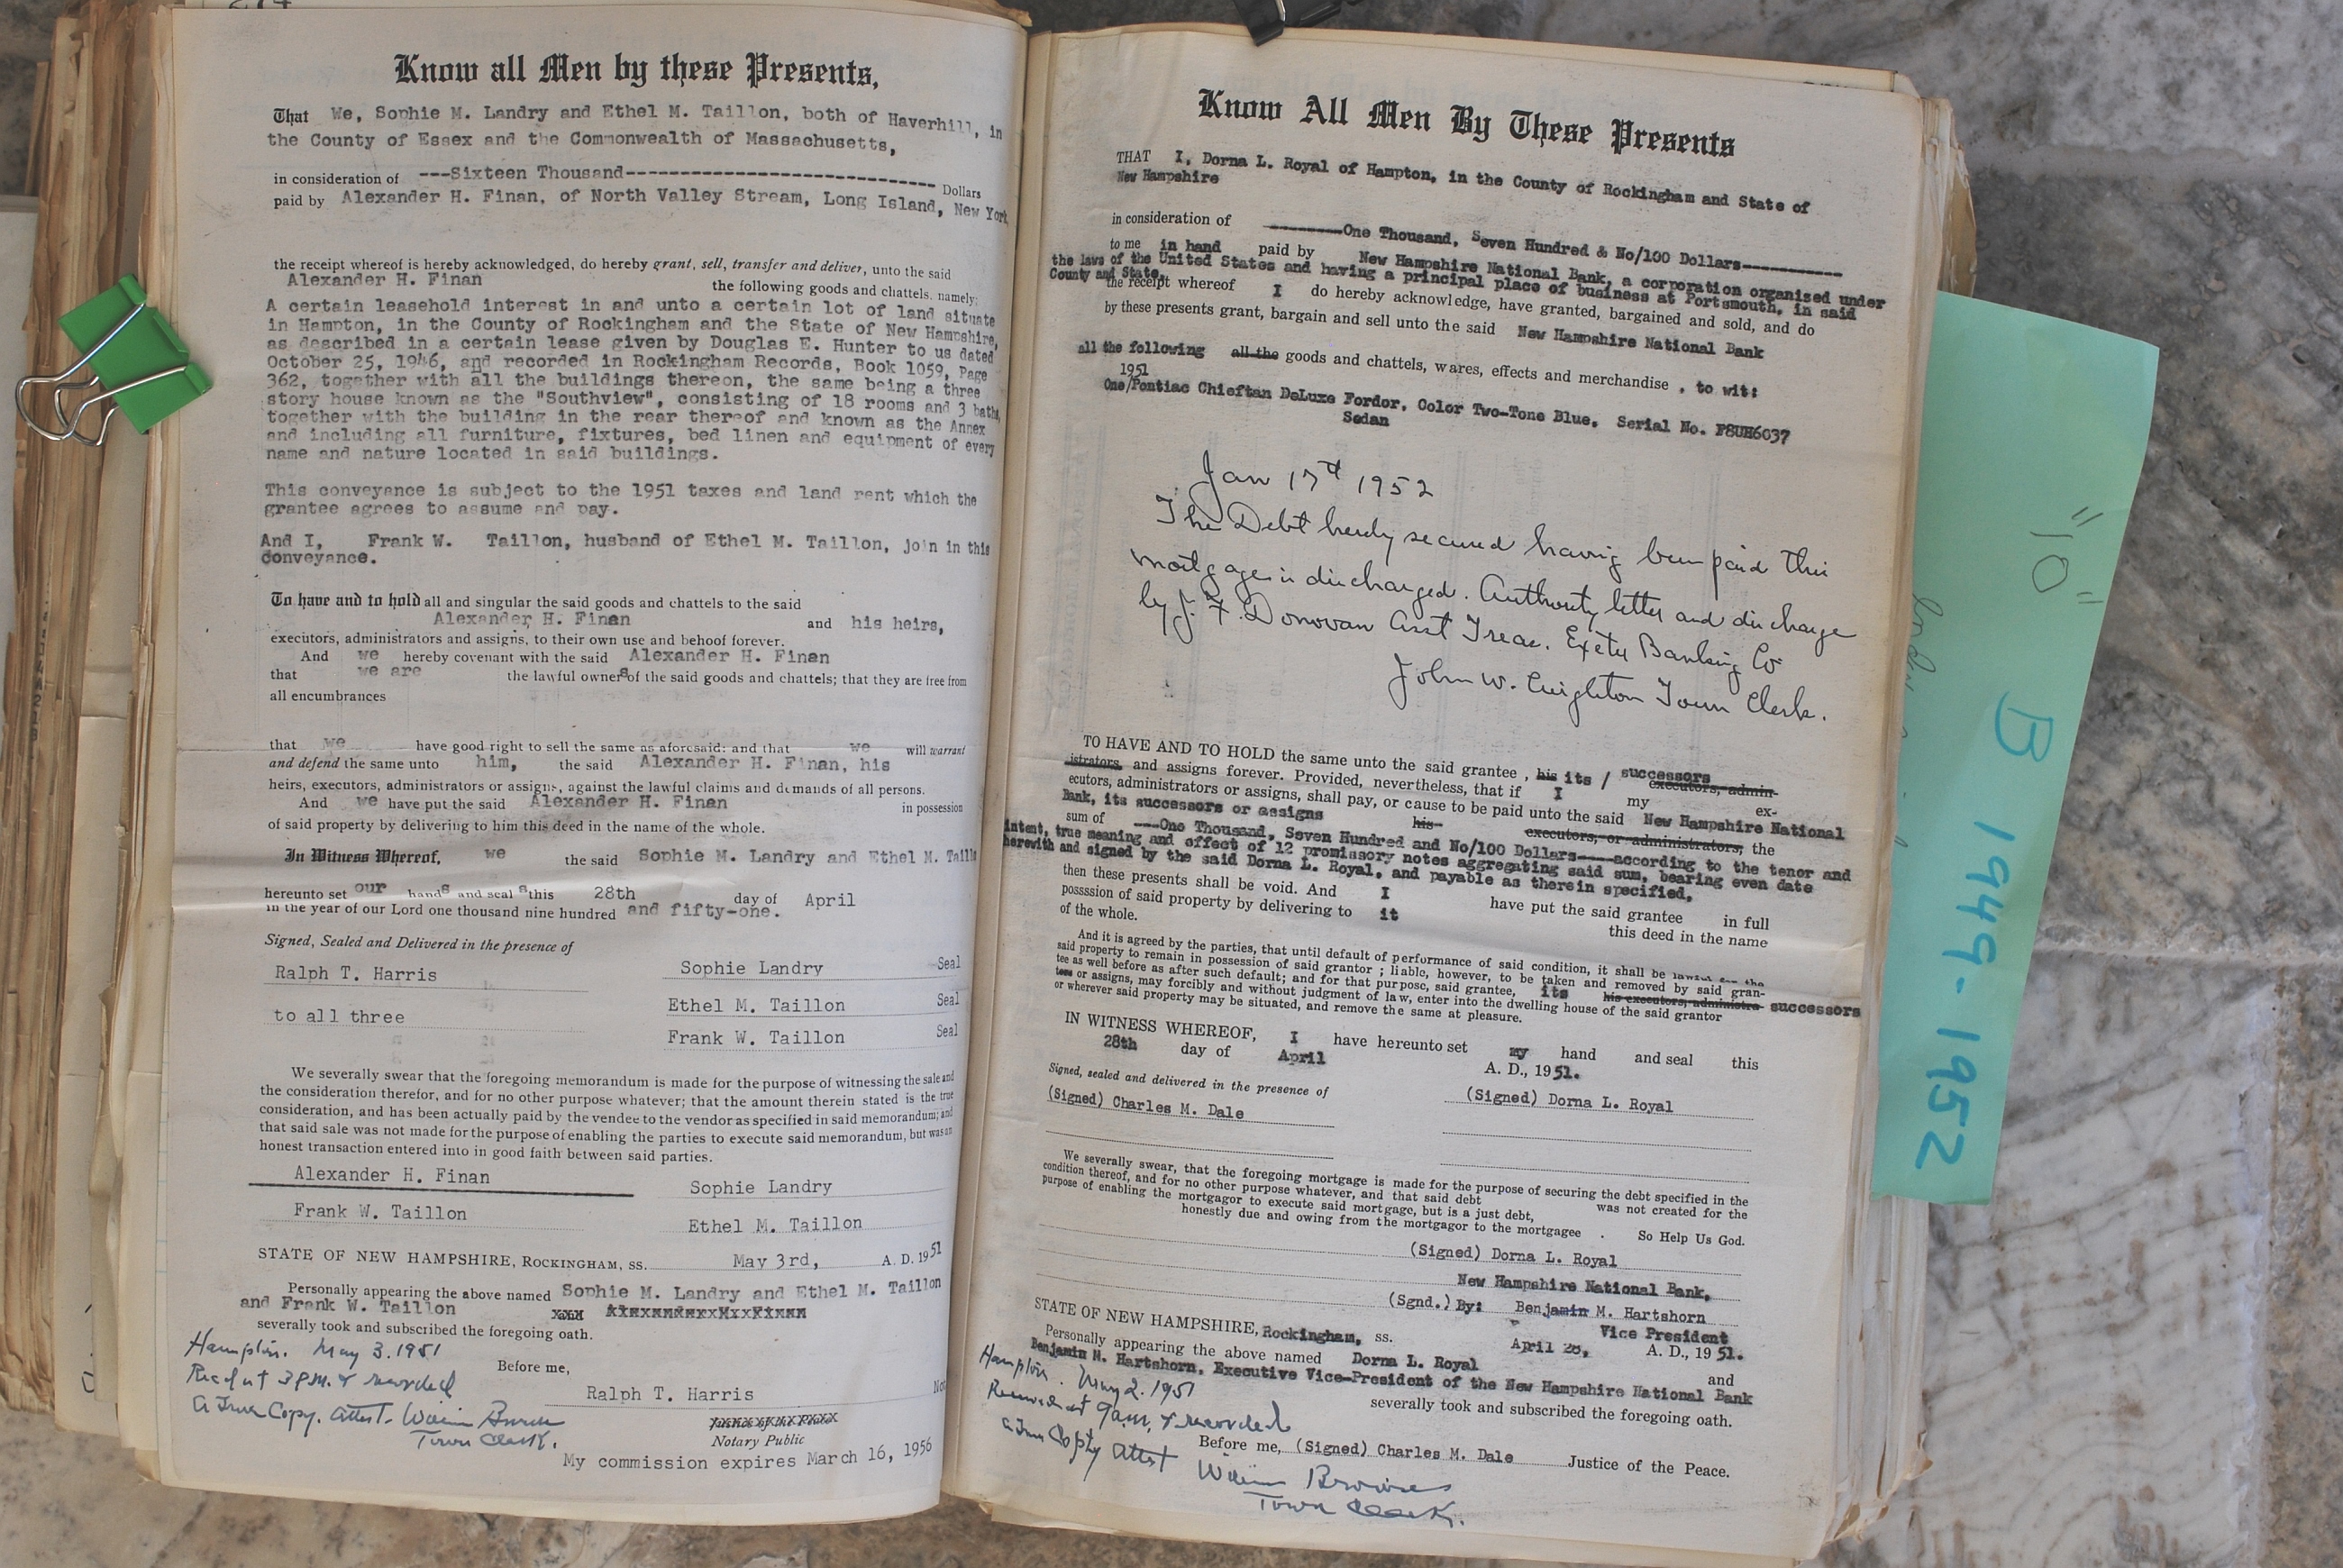 Know all Men by these Presents,
That We, Sophie M. Landry and Ethel M. Taillon, both of Haverhill, in
the County of Essex and the Commonwealth of Massachusetts,
in consideration of ---Sixteen Thousand--------------------------- Dollars
paid by Alexander H. Finan, of North Valley Stream, Long Island, New York
the receipt whereof is hereby acknowledged, do hereby grant, sell, transfer and deliver, unto the said
Alexander H. Finan the following goods and chattels, namely;
A certain leasehold interest in and unto a certain lot of land situate
in Hampton, in the County of Rockingham and the State of New Hampshire,
as described in a certain lease given by Douglas E. Hunter to us dated
October 25, 1946, and recorded in Rockingham Records, Book 1059, Page
362, together with all the buildings thereon, the same being a three
story house known as the "Southview", consisting of 18 rooms and 3 baths,
together with the building in the rear thereof and known as the Annex
and including all furniture, fixtures, bed linen and equipment of every
name and nature located in said buildings.
This conveyance is subject to the 1951 taxes and land rent which the
grantee agrees to assume and pay.
And I, Frank W. Taillon, husband of Ethel M. Taillon, join in this
conveyance.
To have and to hold all and singular the said goods and chattels to the said
Alexander H. Finan and his heirs,
executors, administrators and assigns, to their own use and behoof forever.
And we hereby covenant with the said Alexander H. Finan
that we are the lawful owners of the said goods and chattels; that they are free from
all encumbrances
that we have good right to sell the same as aforesaid: and that we will warrant
and defend the same unto him, the said Alexander H. Finan, his
heirs, executors, administrators or assigns, against the lawful claims and demands of all persons.
And we have put the said Alexander H. Finan in possession
of said property by delivering to him this deed in the name of the whole.
In Witness Whereof, we the said Sophie M. Landry and Ethel M. Taill
hereunto set our hands and seal s this 28th day of April
in the year of our Lord one thousand nine hundred and fifty-one.
Signed, Sealed and Delivered in the presence of
Ralph T. Harris Sophie Landry Seal
Ethel M. Taillon Seal
to all three
Frank W. Taillon Seal
We severally swear that the foregoing memorandum is made for the purpose of witnessing the sale and
the consideration therefor, and for no other purpose whatever; that the amount therein stated is the true
consideration, and has been actually paid by the vendee to the vendor as specified in said memorandum; and
that said sale was not made for the purpose of enabling the parties to execute said memorandum, but was an
honest transaction entered into in good faith between said parties.
Alexander H. Finan Sophie Landry
Frank W. Taillon Ethel M. Taillon
STATE OF NEW HAMPSHIRE, ROCKINGHAM, SS. May 3rd, A. D. 1951
Personally appearing the above named Sophie M. Landry and Ethel M. Taillon
and Frank W. Taillon
severally took and subscribed the foregoing oath.
Hampton. May 3. 1951
Before me,
Recd at 3 P.M. & recorded
Ralph T. Harris
A True Copy. Attest.
Town Clerk.
Notary Public
My commission expires March 16, 1956
Know All Men By These Presents
THAT I, Dorna L. Royal of Hampton, in the County of Rockingham and State of
New Hampshire
in consideration of ---------One Thousand, Seven Hundred & No/100 Dollars-----------
to me in hand paid by New Hampshire National Bank, a corporation organized under
the laws of the United States and having a principal place of business at Portsmouth, in said
County and State,
the receipt whereof I do hereby acknowledge, have granted, bargained and sold, and do
by these presents grant, bargain and sell unto the said New Hampshire National Bank
all the following all the goods and chattels, wares, effects and merchandise , to wit:
1951
One/Pontiac Chieftan DeLuxe Fordor, Color Two-Tone Blue, Serial No. P8UH6037
Sedan
Jan 17th 1952
The Debt hereby secured having been paid this
mortgage is discharged. Authority letter and discharge
by J. F. Donovan Asst Treas. Exeter Banking Co
John W. Creighton Town Clerk.
TO HAVE AND TO HOLD the same unto the said grantee , his its / successors executors, admin-
istrators, and assigns forever. Provided, nevertheless, that if I my ex-
ecutors, administrators or assigns, shall pay, or cause to be paid unto the said New Hampshire National
Bank, its successors or assigns his executors, or administrators, the
sum of ---One Thousand, Seven Hundred and No/100 Dollars----according to the tenor and
intent, true meaning and effect of 12 promissory notes aggregating said sum, bearing even date
herewith and signed by the said Dorna L. Royal, and payable as therein specified,
then these presents shall be void. And I have put the said grantee in full
posssion of said property by delivering to it this deed in the name
of the whole.
And it is agreed by the parties, that until default of performance of said condition, it shall be lawful for the
said property to remain in possession of said grantor ; liable, however, to be taken and removed by said gran-
tee as well before as after such default; and for that purpose, said grantee, its his executors, administra- successors
tors or assigns, may forcibly and without judgment of law, enter into the dwelling house of the said grantor
or wherever said property may be situated, and remove the same at pleasure.
IN WITNESS WHEREOF, I have hereunto set my hand and seal this
28th day of April A. D., 1951.
Signed, sealed and delivered in the presence of
(Signed) Charles M. Dale (Signed) Dorna L. Royal
We severally swear, that the foregoing mortgage is made for the purpose of securing the debt specified in the
condition thereof, and for no other purpose whatever, and that said debt was not created for the
purpose of enabling the mortgagor to execute said mortgage, but is a just debt,
honestly due and owing from the mortgagor to the mortgagee . So Help Us God.
(Signed) Dorna L. Royal
New Hampshire National Bank,
(Sgnd.) By: Benjamin M. Hartshorn
Vice President
STATE OF NEW HAMPSHIRE, Rockingham, ss. April 28, A. D., 1951.
Personally appearing the above named Dorna L. Royal and
Benjamin M. Hartshorn, Executive Vice-President of the New Hampshire National Bank
severally took and subscribed the foregoing oath.
Hampton. May 2. 1951
Received at 9 a.m. & recorded
A True Copy Attest
Before me, (Signed) Charles M. Dale Justice of the Peace.
Town Clerk.
"10"
B 1949-1952